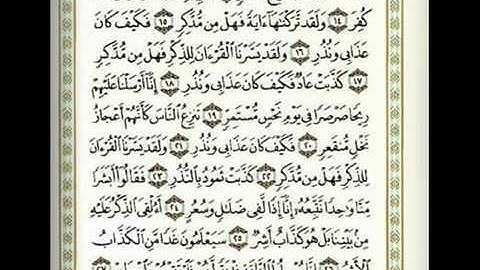 كُفِرَ ١٤ وَلَقَد تَّرَكْنَٰهَآ ءَايَةً فَهَلْ مِن مُّدَّكِرٍ ١٥ فَكَيْفَ كَانَ
عَذَابِى وَنُذُرِ ١٦ وَلَقَدْ يَسَّرْنَا ٱلْقُرْءَانَ لِلذِّكْرِ فَهَلْ مِن مُّدَّكِرٍ
١٧ كَذَّبَتْ عَادٌ فَكَيْفَ كَانَ عَذَابِى وَنُذُرِ ١٨ إِنَّآ أَرْسَلْنَا عَلَيْهِمْ
رِيحًا صَرْصَرًا فِى يَوْمِ نَحْسٍ مُّسْتَمِرٍّ ١٩ تَنزِعُ ٱلنَّاسَ كَأَنَّهُمْ أَعْجَازُ
نَخْلٍ مُّنقَعِرٍ ٢٠ فَكَيْفَ كَانَ عَذَابِى وَنُذُرِ ٢١ وَلَقَدْ يَسَّرْنَا ٱلْقُرْءَانَ
لِلذِّكْرِ فَهَلْ مِن مُّدَّكِرٍ ٢٢ كَذَّبَتْ ثَمُودُ بِٱلنُّذُرِ ٢٣ فَقَالُوٓا۟ أَبَشَرًا
مِّنَّا وَٰحِدًا نَّتَّبِعُهُۥٓ إِنَّآ إِذًا لَّفِى ضَلَٰلٍ وَسُعُرٍ ٢٤ أَءُلْقِىَ ٱلذِّكْرُ عَلَيْهِ
مِنۢ بَيْنِنَا بَلْ هُوَ كَذَّابٌ أَشِرٌ ٢٥ سَيَعْلَمُونَ غَدًا مَّنِ ٱلْكَذَّابُ
ٱلْأَشِرُ ٢٦